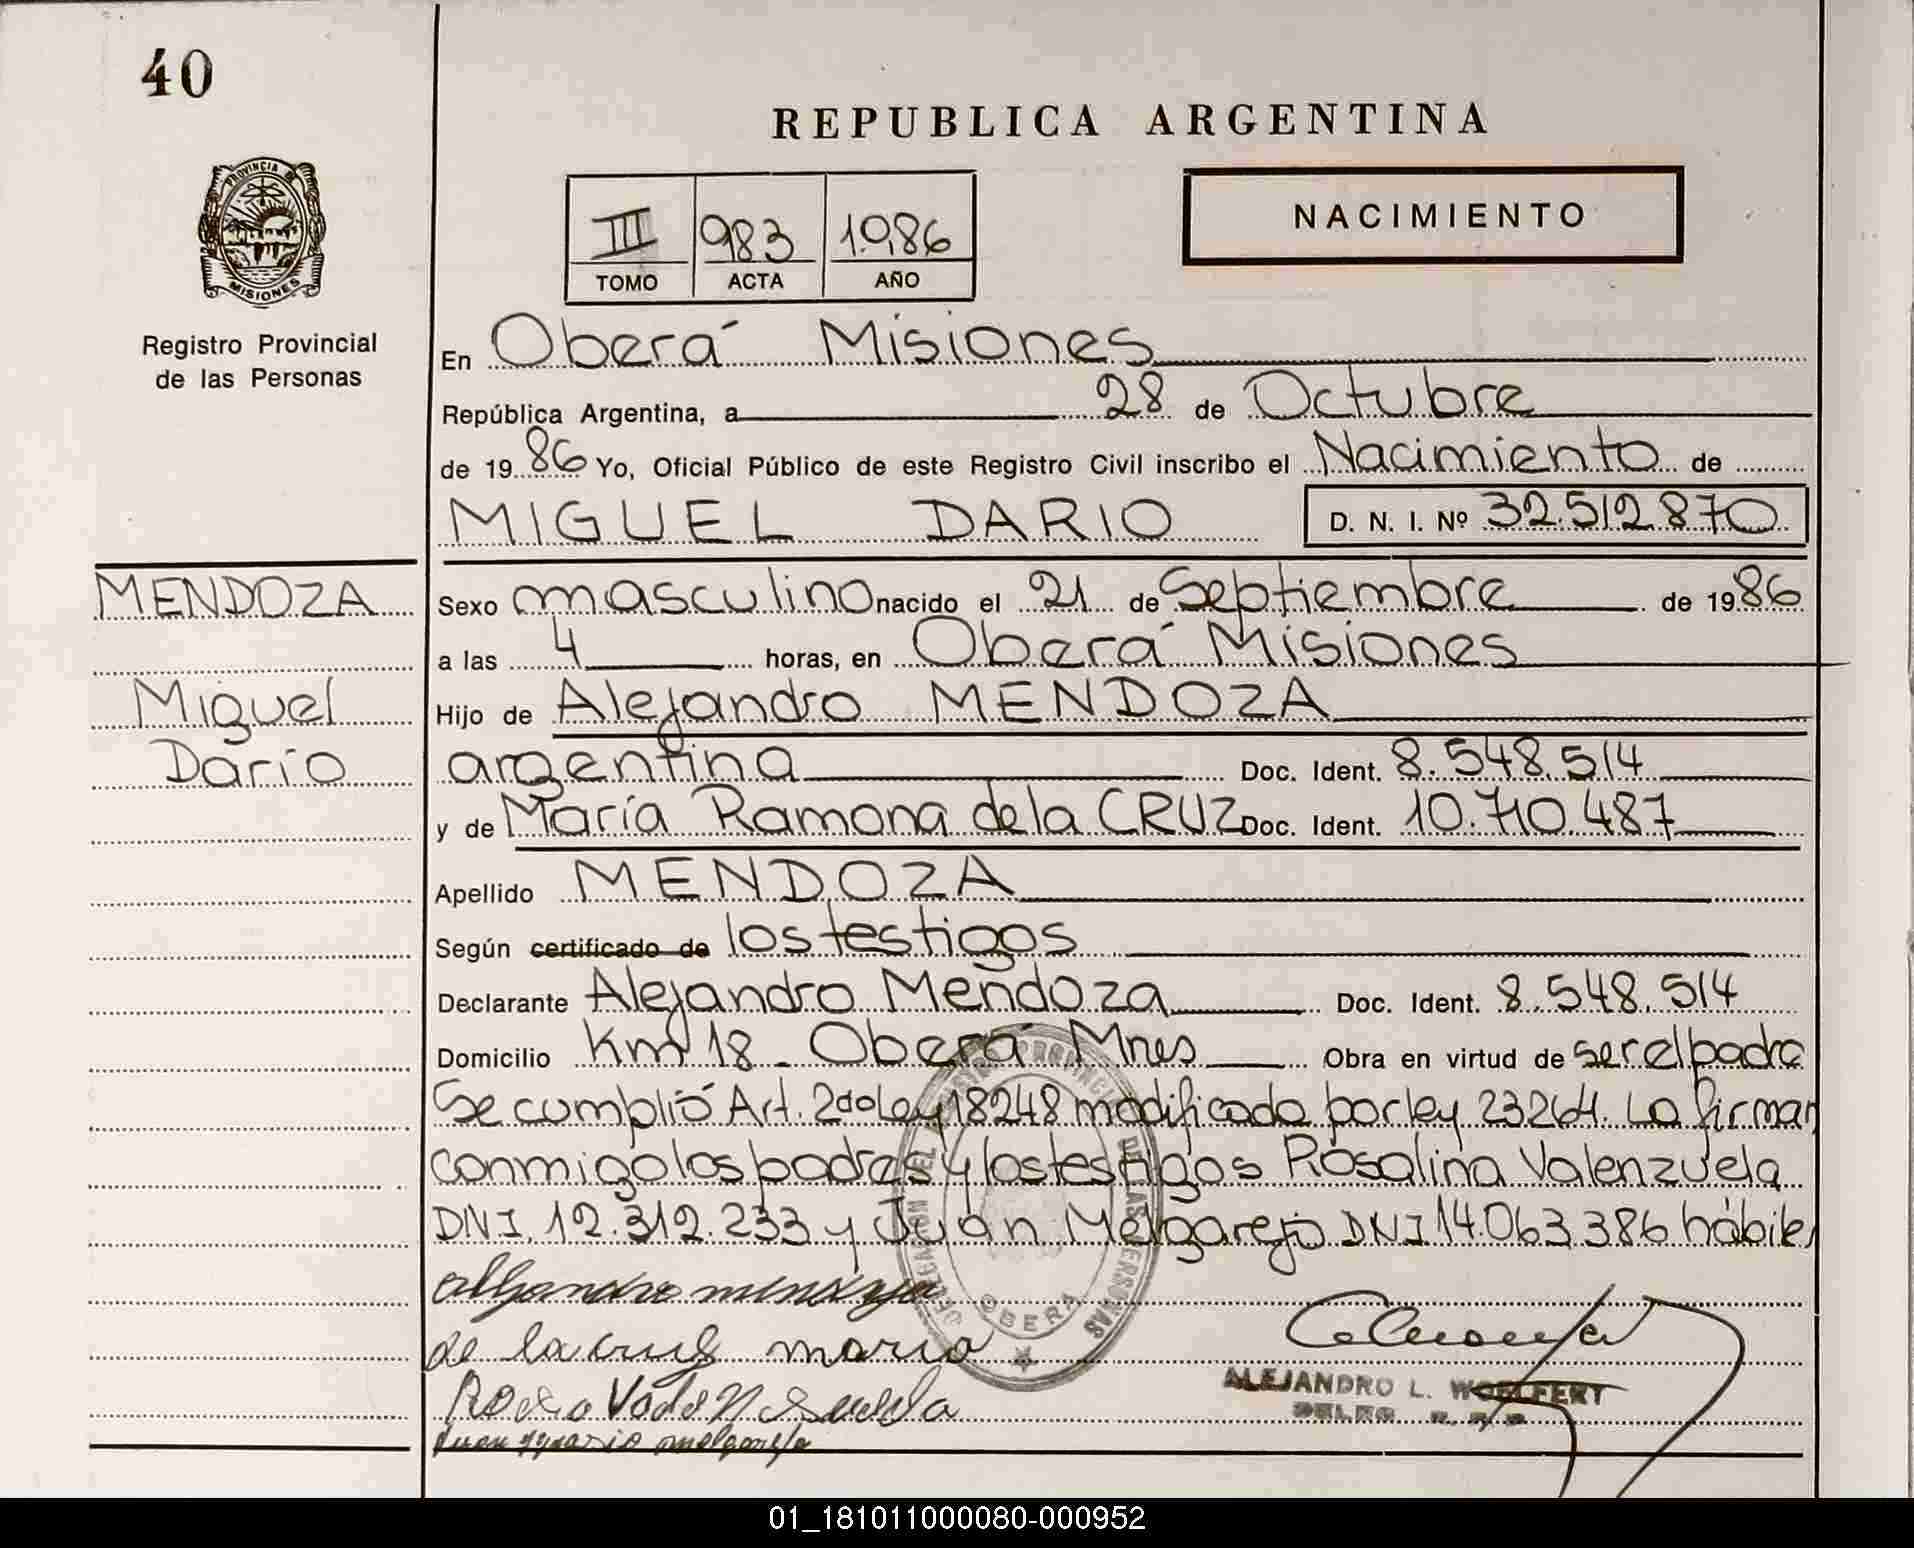 40
REPUBLICA ARGENTINA
PROVINCIA DE
MISIONES
III 983 1986
TOMO ACTA AÑO
NACIMIENTO
Registro Provincial
de las Personas
En Oberá Misiones
República Argentina, a 28 de Octubre
de 1986 Yo, Oficial Público de este Registro Civil inscribo el Nacimiento de
MIGUEL DARIO D. N. I. Nº 32.512.870
MENDOZA
Miguel
Darío
Sexo masculino nacido el 21 de Septiembre de 1986
a las 4 horas, en Oberá Misiones
Hijo de Alejandro MENDOZA
argentina Doc. Ident. 8.548.514
y de María Ramona de la CRUZ Doc. Ident. 10.710.487
Apellido MENDOZA
Según certificado de los testigos
Declarante Alejandro Mendoza Doc. Ident. 8.548.514
Domicilio Km 18 - Oberá Mnes Obra en virtud de ser el padre
Se cumplió Art. 2do Ley 18248 modificada por ley 23264. La firman
conmigo los padres y los testigos Rosalina Valenzuela
DNI. 12.312.233 y Juan Melgarejo DNI 14.063.386 hábiles
DELEGACION DEL REGISTRO PROVINCIAL DE LAS PERSONAS
OBERA
alejandro mendoza
de la cruz maria
juan ygnasio melgarejo
ALEJANDRO L. WOELFERT
01_181011000080-000952